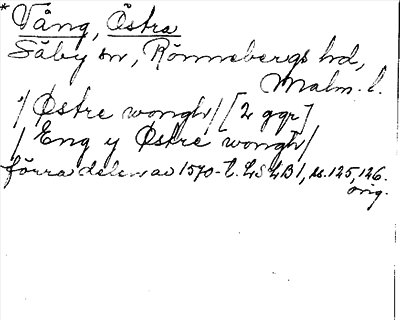 * Vång, Östra
Säby sn, Rönnebergs hd,
Malm. l.
/ Østre wongh / [2 ggr]
/ Eng y Østre wongh /
förra delen av 1570-t. LSLB 1, s. 125, 126.
orig.